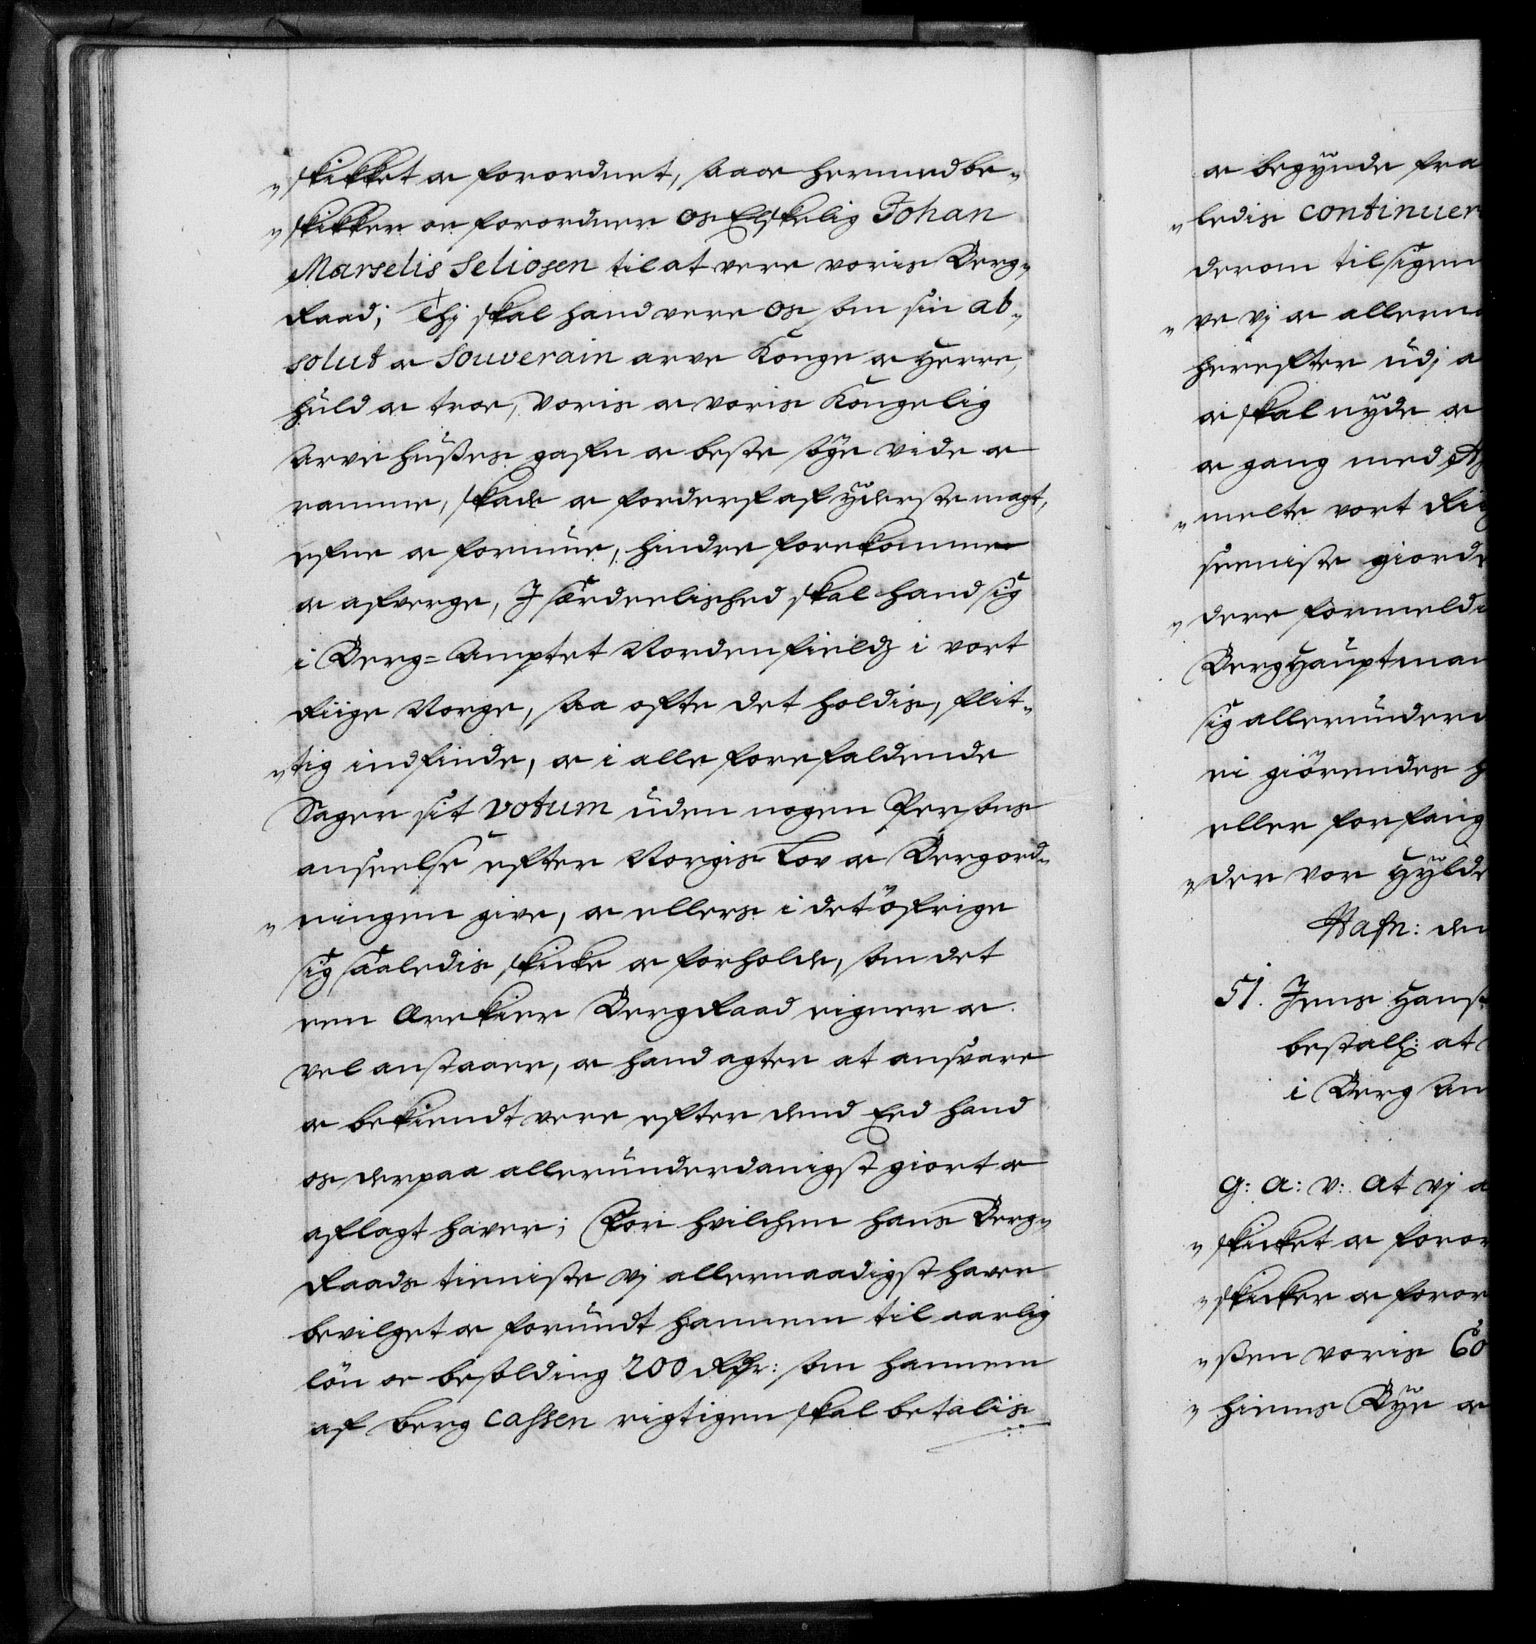 „skikket oc forordnet, saa oc hermed be„
„skikker oc forordner os Elskelig Johan
Marselis Seliosen til at vere voris Berg„
Raad; Thj skal hand vere os som sin ab„
solut oc Souverain arve Konge oc Herre,
huld oc troe, Voris oc voris Kongelig
Arve Huses gafn oc beste söge vide oc
ramme, skade oc forderf af yderste magt,
efne oc formue, hindre forekomme
oc afverge, J særdeelished skal hand sig
i Berg=Amptet Nordenfields i vort
Riige Norge, saa ofte det holdis, flit„
„tig indfinde, oc i alle forefaldende
Sager sit votum uden nogen Persons
anseelse efter Norgis Lov oc Bergord„
„ningen give, oc ellers i det öfrige
sig saaledis skicke oc forholde, som det
een Bergraad eigner oc
vel anstaaer, oc hand agter at ansvare
oc bekiendt vere efter dend Eed hand
os derpaa allerunderdanigst giort oc
aflagt haver; For hvilchen hans Berg„
Raads tieniste vj allernaadigst haver
bevilget oc forundt hannem til aarlig
lön oc besolding 200 Rdr: som hannem
af berg cassen rigtigen skal betalis
oc begynde fra
„ledis continuer
derom tilsigen
„ve vj oc allern
herefter udj a
oc skal nyde oc
oc gang med
„melte vort Rig
seeniste giord
„dere formeld
Berghauptman
sig allerunderd
ei giörendes h
eller forfang
„der vor Hylde
Hafn: den
51. Jens Hans
bestall: at
i Berg Am
G: A: V: At vj a
„skicket oc foror
„skicker oc foror
„sen voris Co
„hiems Bye oc